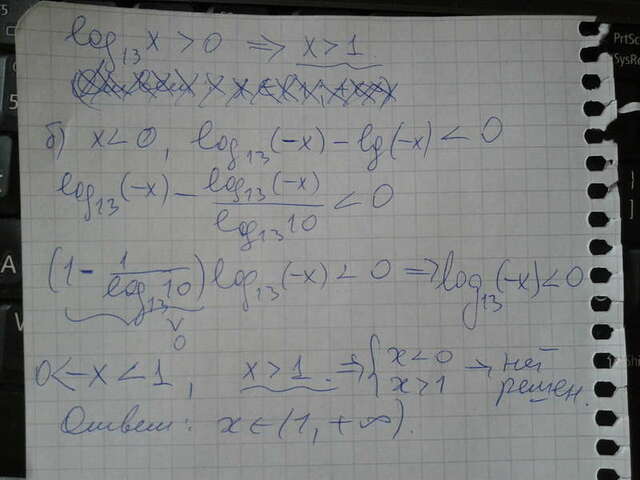 log₁₃ x > 0 ⇒ x > 1
б) x < 0, log₁₃(-x) - lg(-x) < 0
log₁₃(-x) - log₁₃(-x) / log₁₃10 < 0
(1 - 1 / log₁₃10) log₁₃(-x) < 0 ⇒ log₁₃(-x) < 0
∨
0
0 < -x < 1, x > 1 ⇒ { x < 0 x > 1 → нет решен.
Ответ: x ∈ (1, +∞).
PrtSc
SysRq
5
A